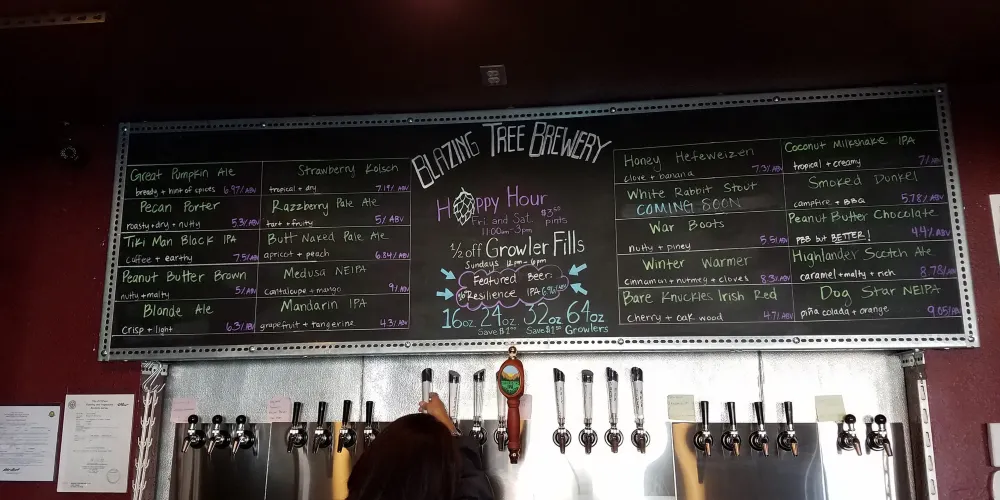 BLAZING TREE BREWERY
Great Pumpkin Ale
bready + hint of spices 6.97/.ABV
Pecan Porter
roasty + dry + nutty 5.3/.ABV
Tiki Man Black IPA
coffee + earthy 7.5/.ABV
Peanut Butter Brown
nutty + malty 5/.ABV
Blonde Ale
crisp + light 6.3/.ABV
Strawberry Kolsch
tropical + dry 7.19/.ABV
Razzberry Pale Ale
tart + fruity 5/.ABV
Butt Naked Pale Ale
apricot + peach 6.84/.ABV
Medusa NEIPA
cantaloupe + mango 9/.ABV
Mandarin IPA
grapefruit + tangerine 4.3/.ABV
Happy Hour
Fri and Sat $3.50
11:00am-3pm pints
1/2 off Growler Fills
Sundays 12pm-6pm
Featured Beer
Resilience IPA
16oz 24oz 32oz 64oz
Save $1.00 Save $1.50 Growlers
Honey Hefeweizen
clove + banana 7.3/.ABV
White Rabbit Stout
COMING SOON
War Boots
nutty + piney 5.5/.ABV
Winter Warmer
cinnamon + nutmeg + cloves 8.3/.ABV
Bare Knuckles Irish Red
cherry + oak wood 4.7/.ABV
Coconut Milkshake IPA
tropical + creamy 7/.ABV
Smoked Dunkel
campfire + BBQ 5.78/.ABV
Peanut Butter Chocolate
PBB but BETTER! 4.4/.ABV
Highlander Scotch Ale
caramel + malty + rich 8.78/.ABV
Dog Star NEIPA
piña colada + orange 9.05/.ABV